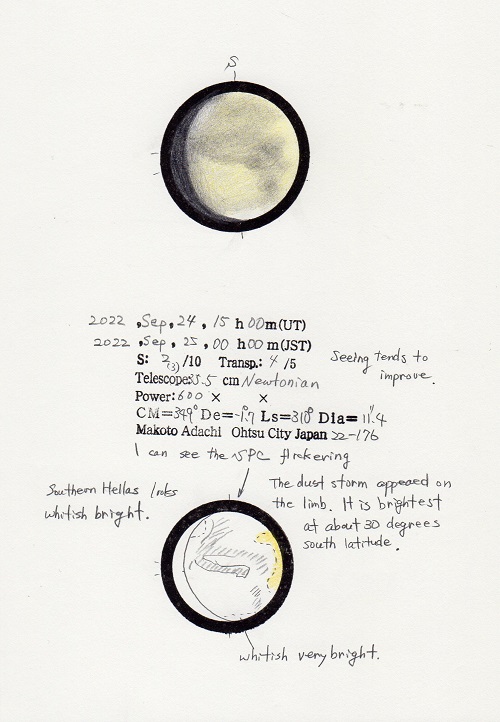 S
2022 , Sep , 24 , 15 h 00 m (UT)
2022 , Sep , 25 , 00 h 00 m (JST)
S: 2(3) /10 Transp.: 4 /5
Seeing tends to
improve.
Telescope: cm Newtonian
Power: 600 × ×
CM=349° De= Ls=318° Dia= 11".4
Makoto Adachi Ohtsu City Japan 22-176
I can see the SPC flickering
Southern Hellas looks
whitish bright.
The dust storm appeared on
the limb. It is brightest
at about 30 degrees
south latitude.
whitish very bright.